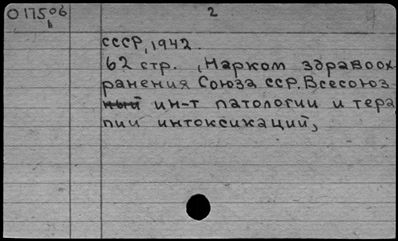 О 17506
2
СССР, 1942.
62 стр. , Нарком здравоох
ранения Союза ССР. Всесоюз
ный ин-т патологии и тера
пии интоксикаций,